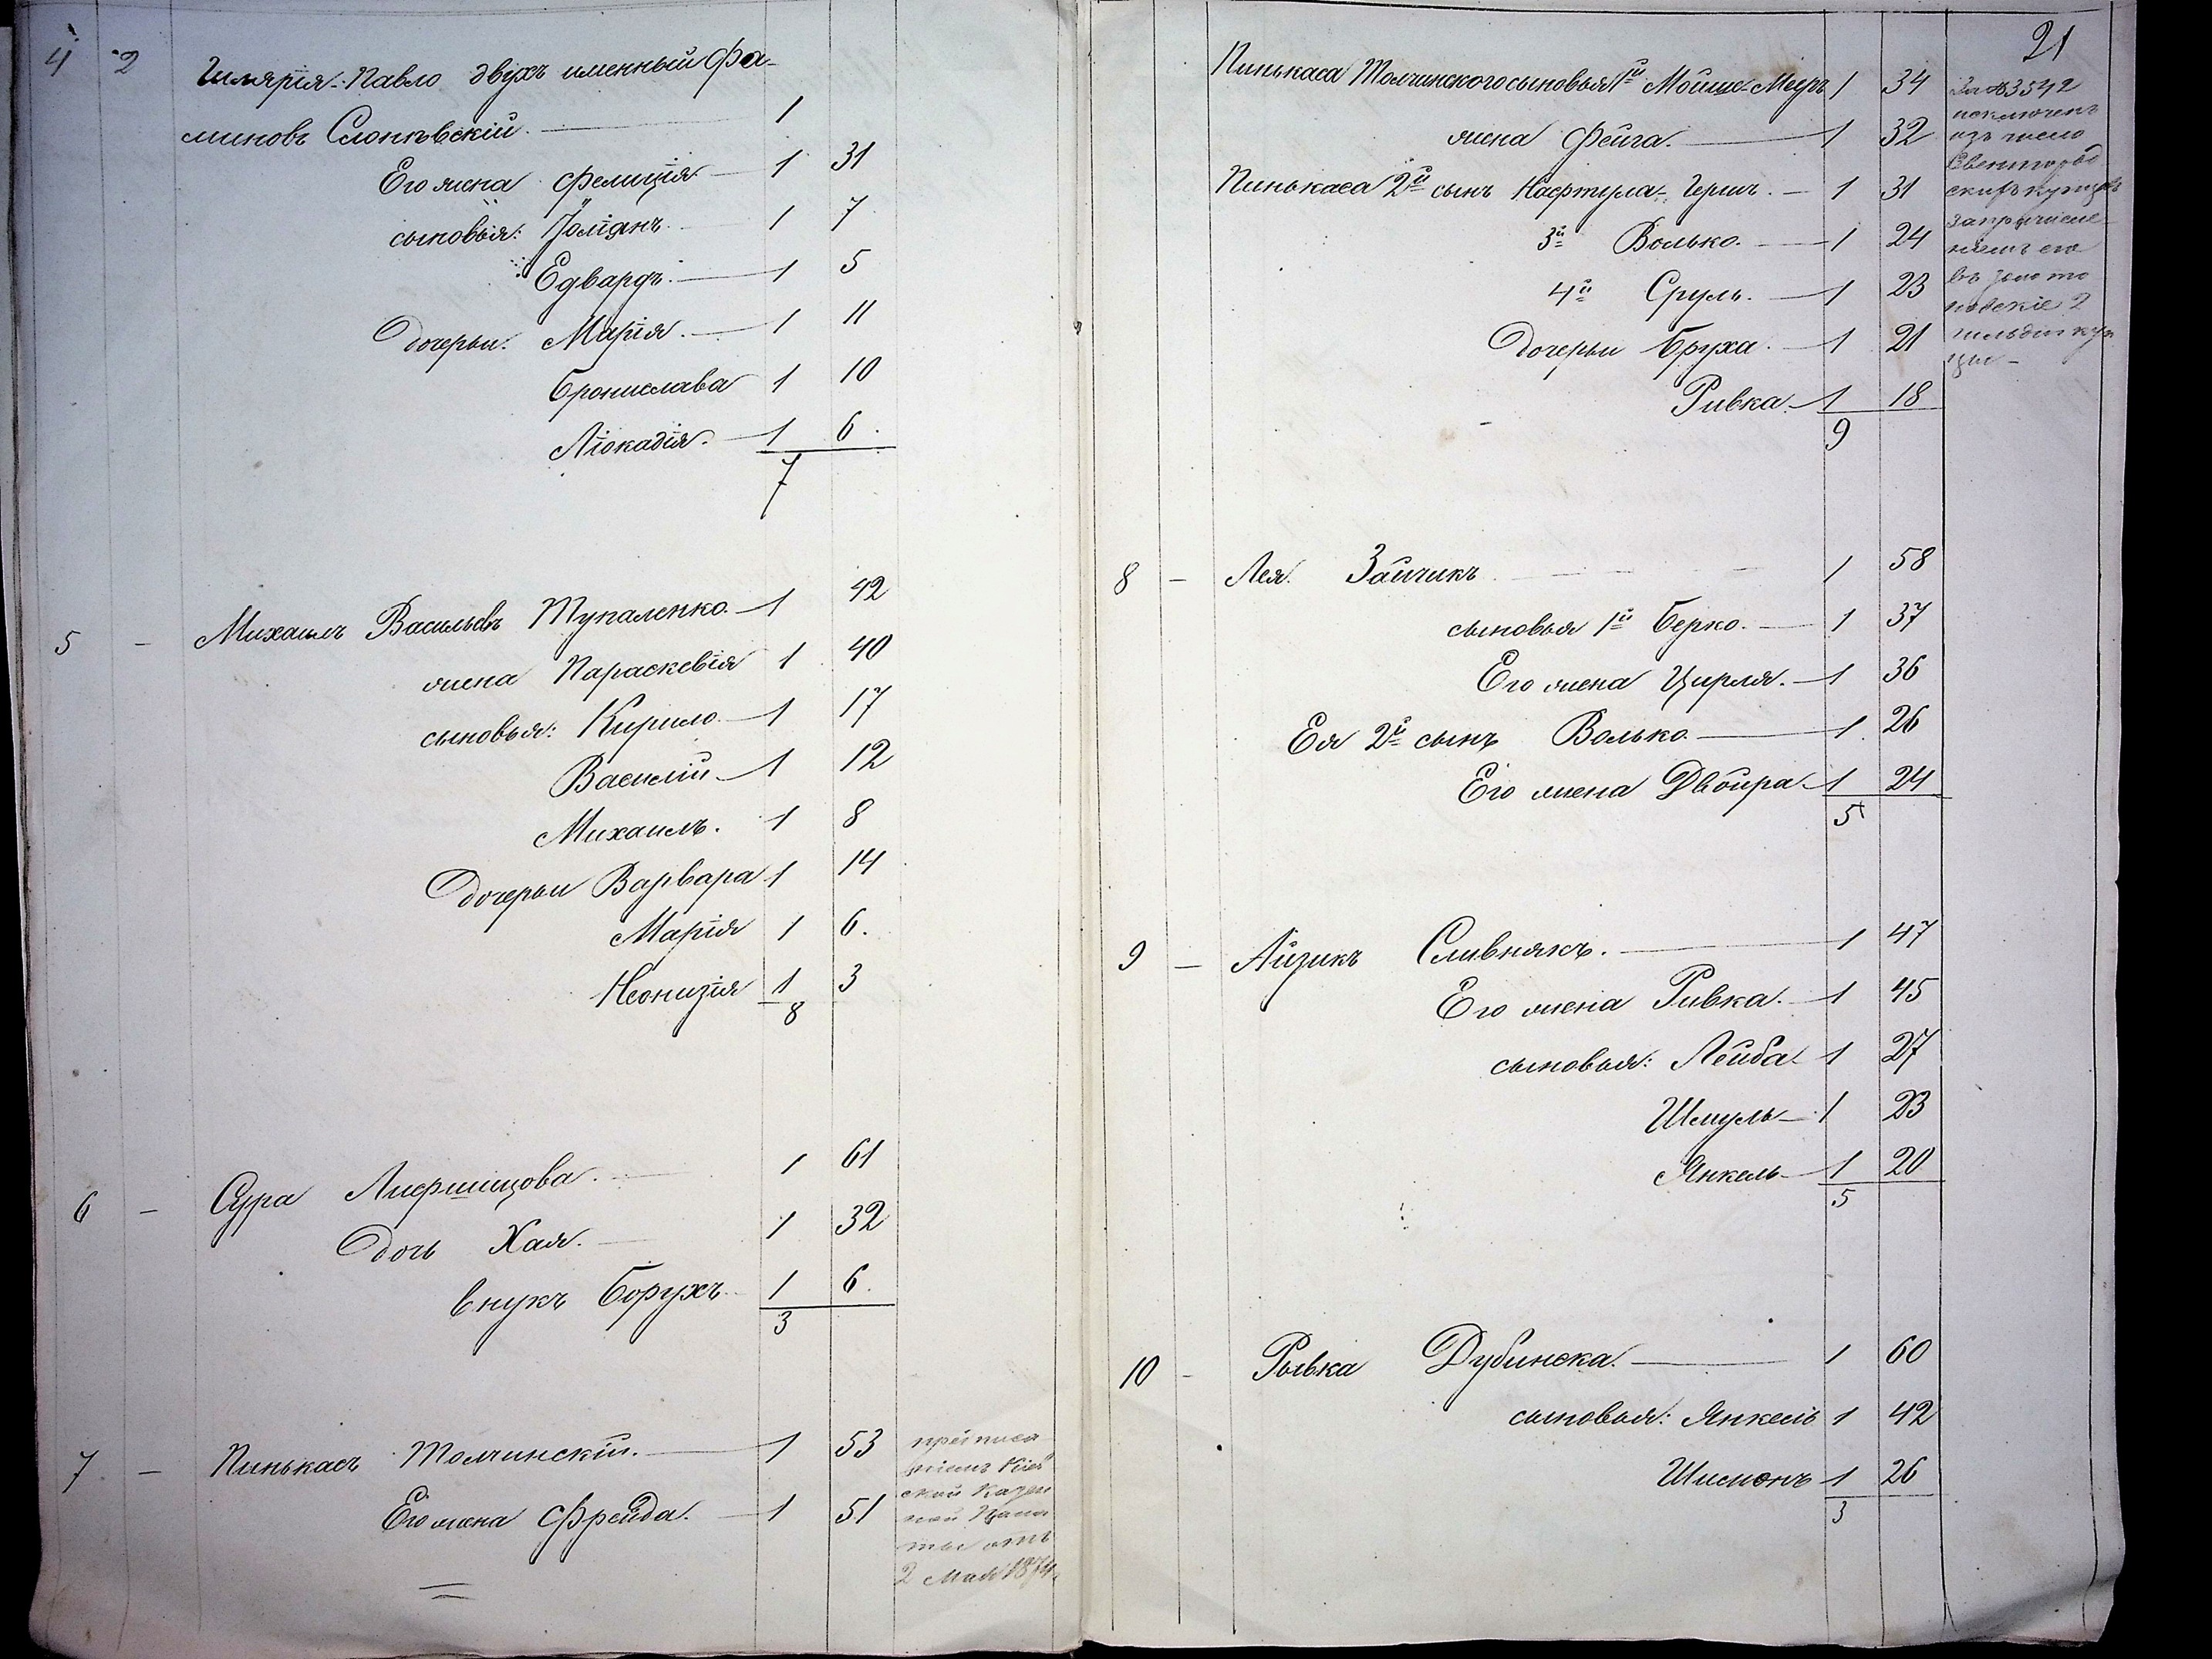 4 2 Гилярія-Павло двухъ именный Фа-
миновъ Слонѣвскій. 1
Его жена Фелиція 1 31
сыновья: Юліянъ 1 7
Едвардъ. 1 5
Дочерьи: Марія. 1 11
Брониславa 1 10
Ліокадія. 1 6.
7
5 - Михаилъ Васильевъ Тупаленко. 1 42
жена Параскевія 1 40
сыновья: Кирило 1 17
Василій 1 12
Михаилъ. 1 8
Дочерьи Варвара 1 14
Марія 1 6.
Неонизія 1 3
8
6 - Сура Лифшицова. 1 61
Дочь Хая. 1 32
внукъ Борухъ 1 6.
3
7 - Пинькасъ Толчинскій. 1 53
Его жена Фрейда. 1 51
ской Казен
ной Пала
ты отъ
2 Мая 1874
21
Пинькаса Толчинского сыновья 1й Мойше-Мееръ 1 34
жена Фейга. 1 32
Пинькаса 2й сынъ Нафтула-Герш. 1 31
3й Волько. 1 24
4й Сруль. 1 23
Дочерьи Бруха. 1 21
Ривка. 1 18
9
За № 3542
исключенъ
изъ число
Звенигород
скихъ купцовъ
запричисле
ніемъ его
въ Золото
повскіе 2
гильдіи куп
цы -
8 - Лея Зайчикъ 1 58
сыновья 1й Берко. 1 37
Его жена Цирля. 1 36
Ея 2й сынъ Волько 1 26
Его жена Двойра 1 24
5
9 - Айзикъ Сливнякъ. 1 47
Его жена Ривка. 1 45
сыновья: Лейба 1 27
Шмуль 1 23
Янкель 1 20
5
10 - Рывка Дубинска. 1 60
сыновья: Янкель 1 42
Шимонъ 1 26
3